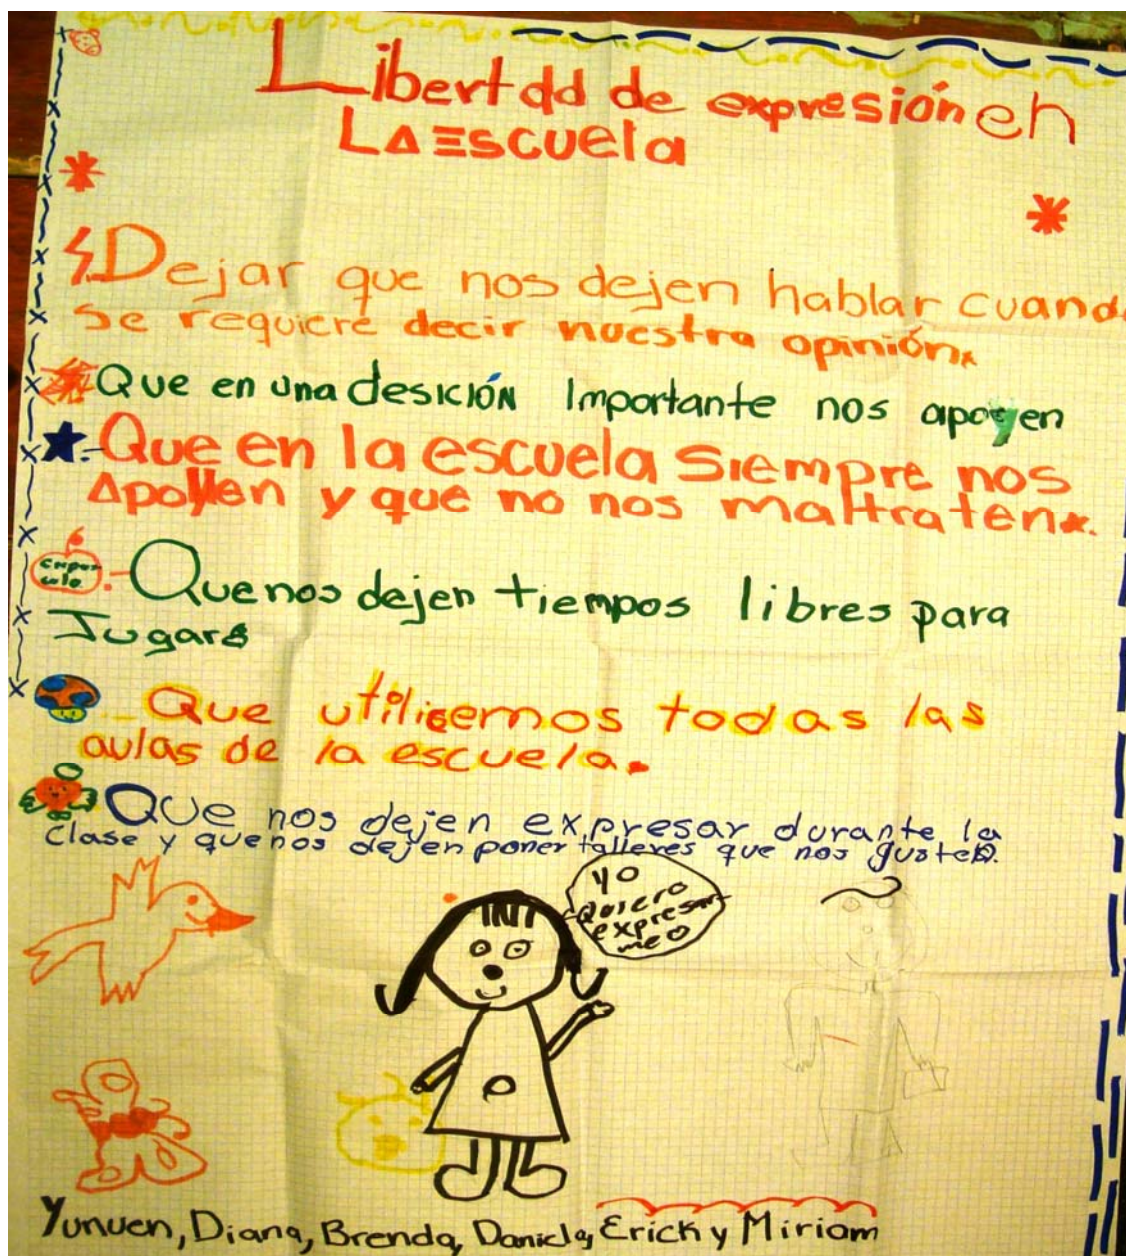 Libertad de expresión en
LA Escuela
Dejar que nos dejen hablar cuando
se requiere decir nuestra opinión
Que en una desición Importante nos apoyen
Que en la escuela siempre nos
Apoyen y que no nos maltraten.
Que nos dejen tiempos libres para
Jugar
Que utilisemos todas las
aulas de la escuela.
Que nos dejen expresar durante la
clase y que nos dejen poner talleres que nos gusten.
yo
quiero
expresar
me
Yunuen, Diana, Brenda, Daniela, Erick y Miriam